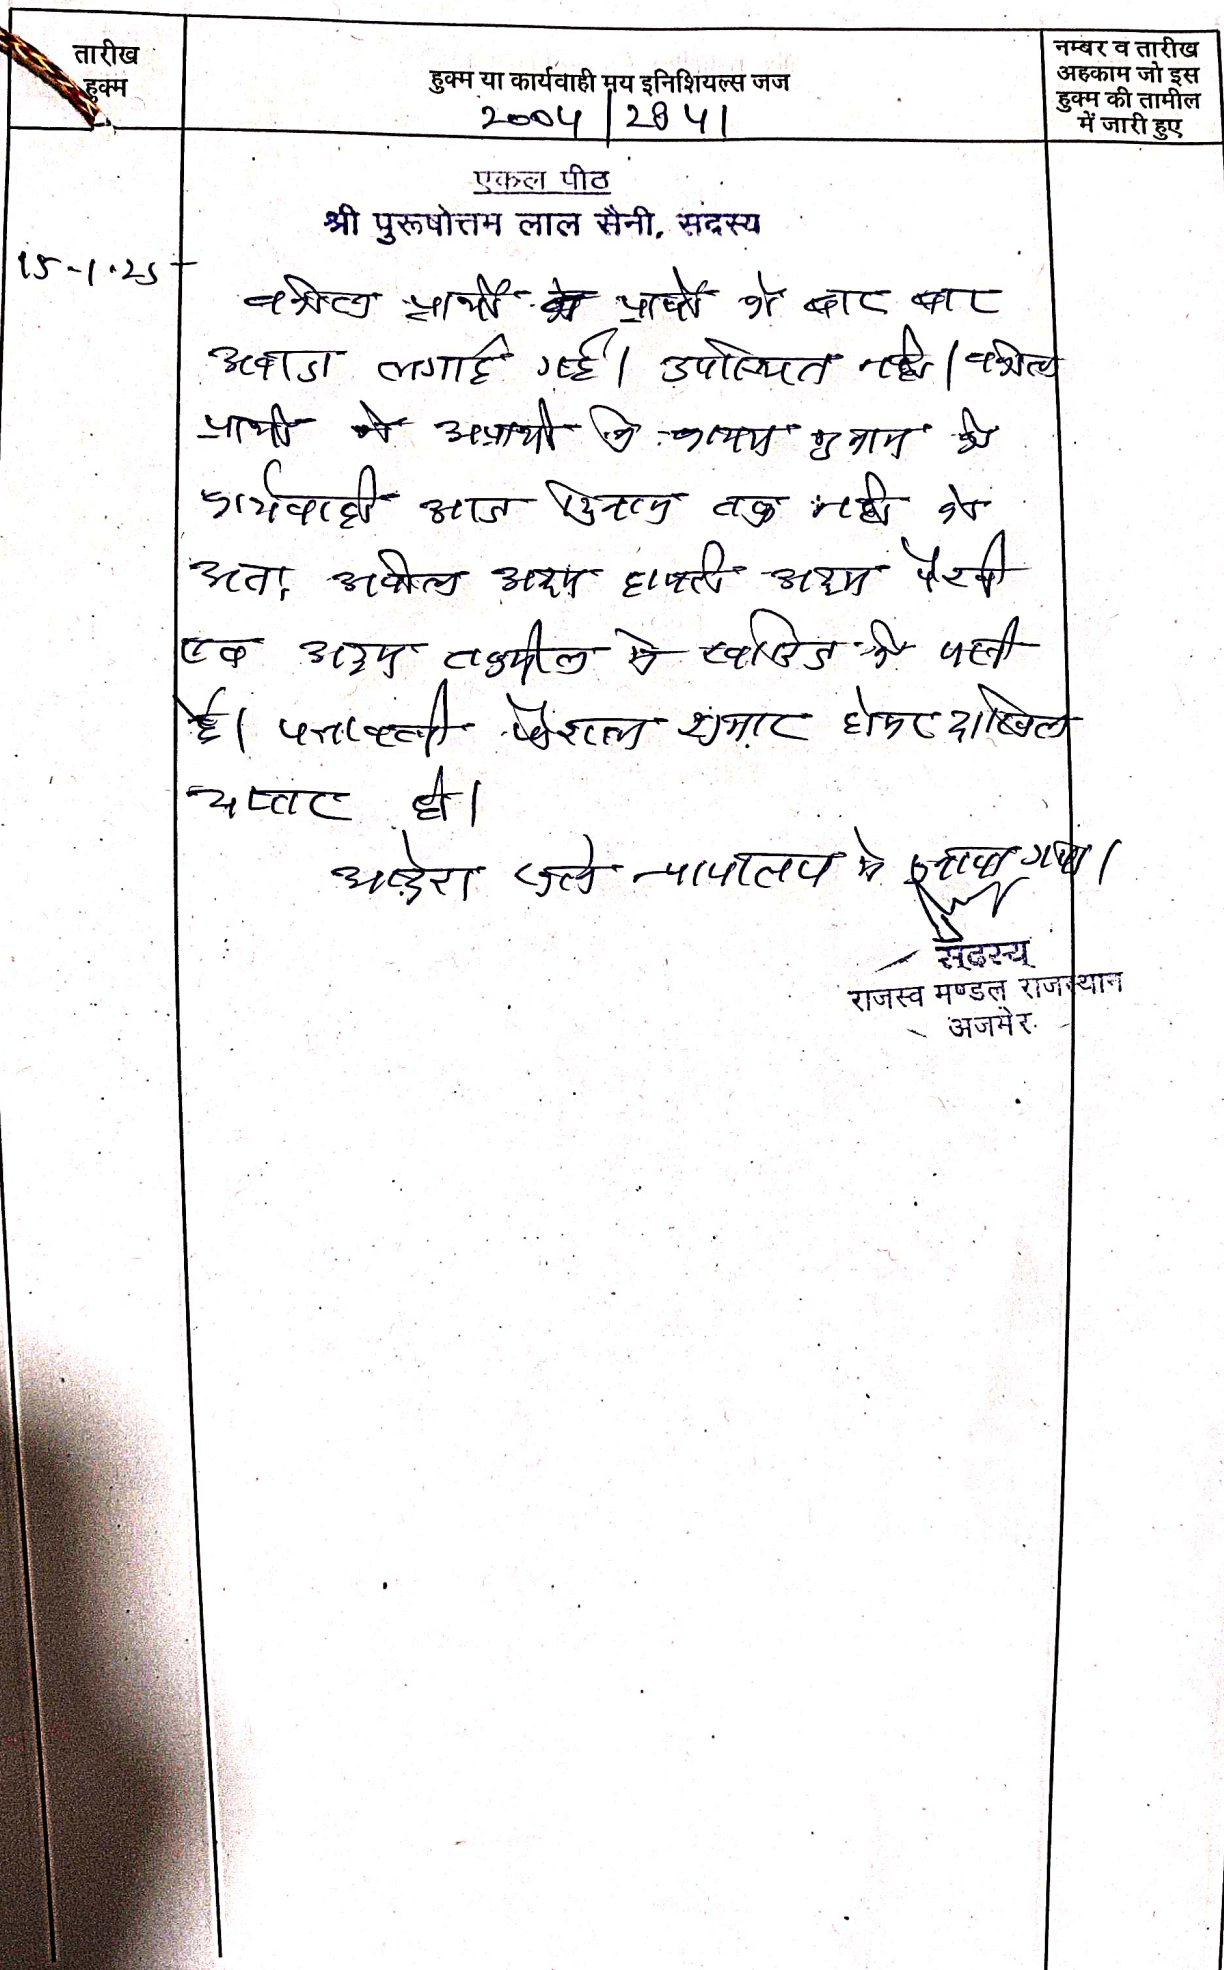 तारीख
हुक्म
हुक्म या कार्यवाही मय इनिशियल्स जज
2004/2841
नम्बर व तारीख
अहकाम जो इस
हुक्म की तामील
में जारी हुए
एकल पीठ
श्री पुरूषोत्तम लाल सैनी, सदस्य
15-1-25
वकील प्रार्थी व प्रार्थी को बार बार
अवाज लगाई गई। उपस्थित नही। वकील
प्रार्थी ने अप्रार्थी कि कायम मुकाम की
कार्यवाही आज दिनांक तक नही की
अतः अपील अदम हाजरी अदम पैरवी
एवं अदम तकमील मे खारिज की जाती
है। पत्रावली फैसल शुमार होकर दाखिल
दफ्तर हो।
आदेश खुले न्यायालय मे सुनाया गया।
सदस्य
राजस्व मण्डल राजस्थान
अजमेर